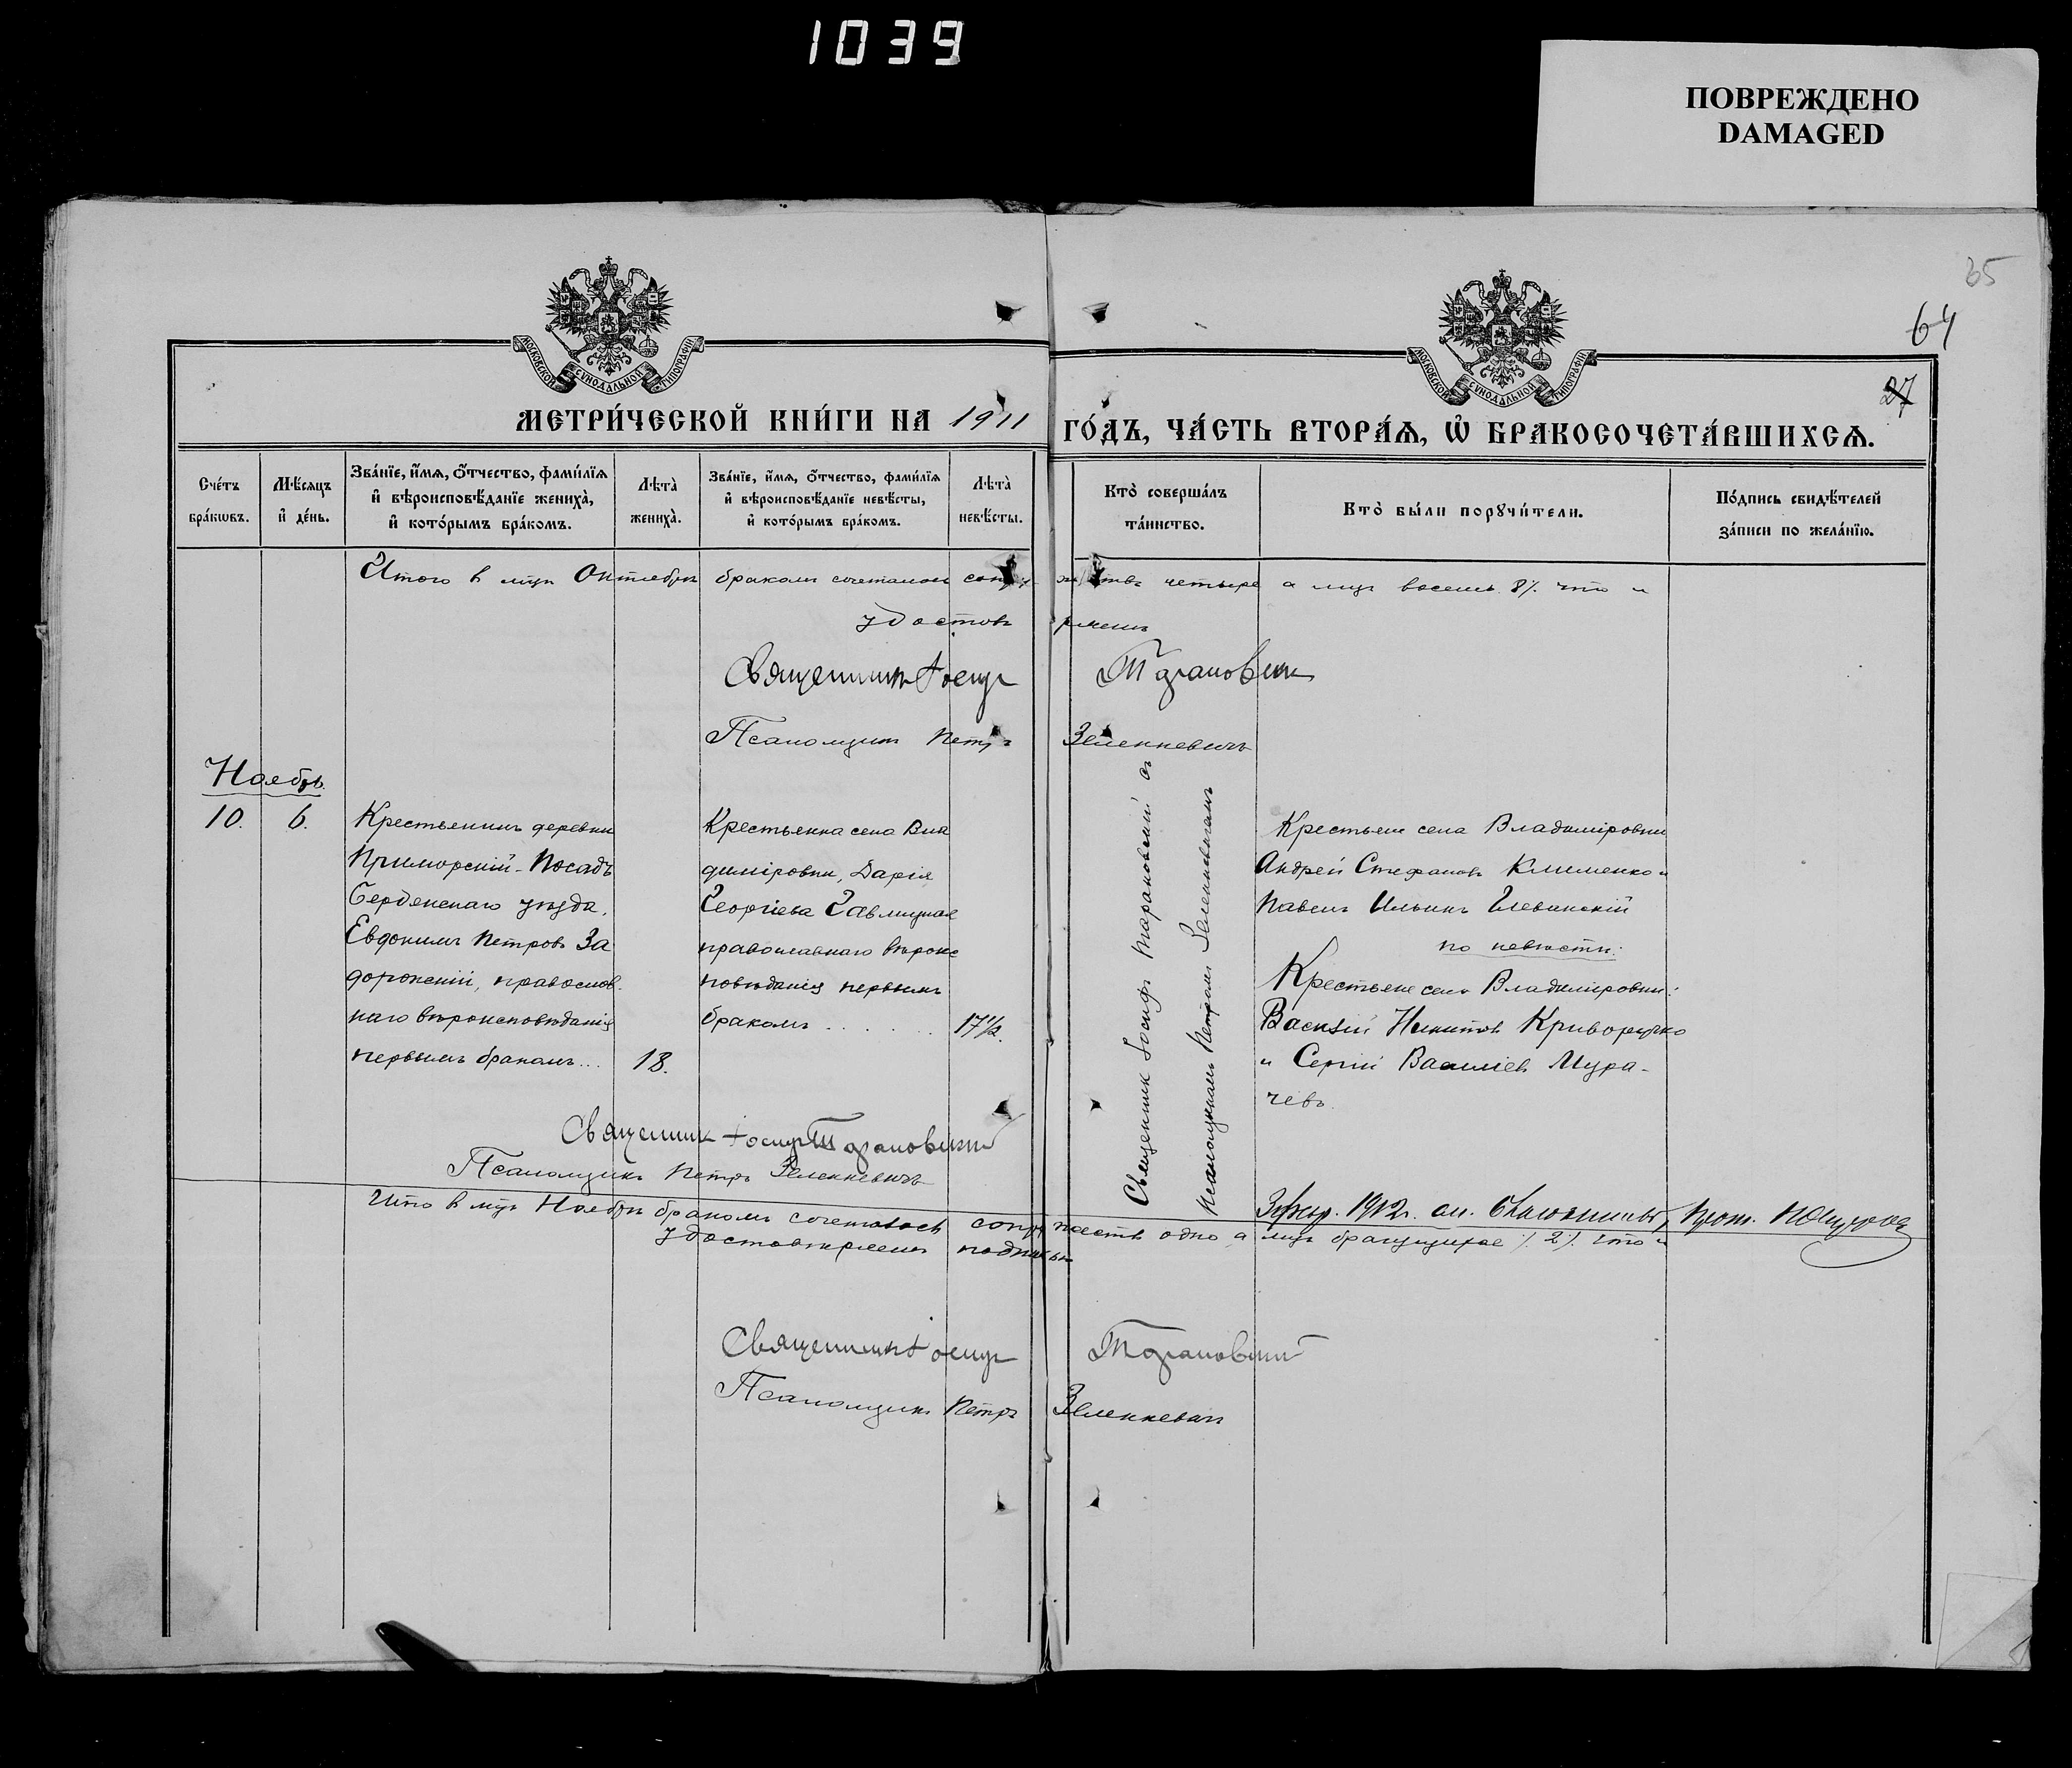 1039
ПОВРЕЖДЕНО
DAMAGED
65
64
27
МОСКОВСКОЙ СѴНОДАЛЬНОЙ ТИПОГРАФІИ
МОСКОВСКОЙ СѴНОДАЛЬНОЙ ТИПОГРАФІИ
МЕТРИ́ЧЕСКОЙ КНИ́ГИ НА 1911 ГО́ДЪ, ЧА́СТЬ ВТОРА́Ѧ, Ѡ҆ БРАКОСОЧЕТА́ВШИХСѦ.
Сче́тъ
бра́кѡвъ.
Мѣ́сяцъ
и҆ де́нь.
Зва́нїе, и҆́мѧ, ѻ҆́тчество, фами́лїѧ
и҆ вѣроисповѣ́данїе жениха̀,
и҆ кото́рымъ бра́комъ.
Лѣта̀
жениха̀.
Зва́нїе, и҆́мѧ, ѻ҆́тчество, фами́лїѧ
и҆ вѣроисповѣ́данїе невѣ́сты,
и҆ кото́рымъ бра́комъ.
Лѣта̀
невѣ́сты.
Кто̀ соверша́лъ
та́инство.
Кто̀ бы́ли порꙋчи́тели.
По́дпись свидѣ́телей
за́писи по жела́нїю.
Итого в мцѣ Октябрѣ бракомъ сочеталось супружествъ четыре а лицъ восемь 8%. что и
удостовѣряемъ
Священникъ Іосифъ Тарановскій
Псаломщикъ Петръ Зеленкевичъ
Ноябрь
10. 6.
Крестьянинъ деревни
Приморскій-Посадъ
Бердянскаго уѣзда,
Евдокимъ Петровъ За
дорожскій, православ
наго вѣроисповѣданія
первымъ бракомъ... 18.
Крестьянка села Вла
диміровки, Дарія
Георгіева Гавлицкая
православнаго вѣроис
повѣданія первымъ
бракомъ . . . . . . 17½.
Священник Іосифъ Тарановскій съ
псаломщикомъ Петромъ Зеленкевичемъ
Крестьяне села Владиміровки
Андрей Стефановъ Клименко и
Павелъ Ильинъ Глевинскій
по невѣстѣ:
Крестьяне села Владиміровки:
Василій Никитовъ Криворучко
и Сергій Василіев Мура-
чевъ.
Священник Іосифъ Тарановскій
Псаломщикъ Петръ Зеленкевичъ
1912г. Прот.
Итого в мцѣ Ноябрѣ бракомъ сочеталось супружествъ одно а лицъ %. 2%. что и
удостовѣряемъ подписью
Священникъ Іосифъ Тарановскій
Псаломщикъ Петръ Зеленкевичъ